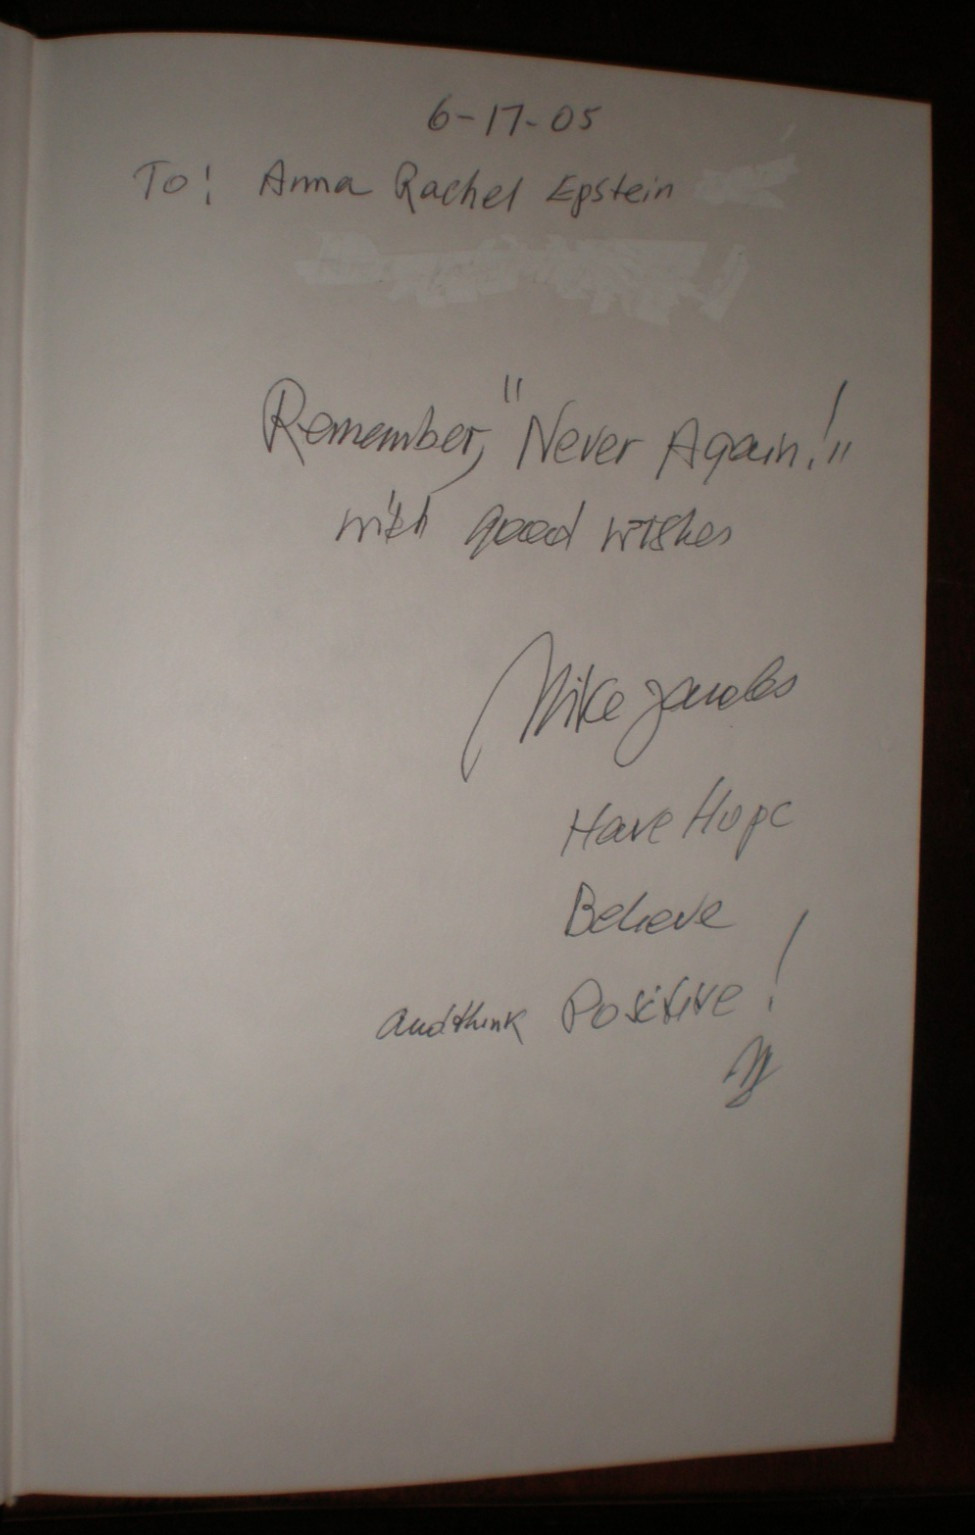 6-17-05
To: Anna Rachel Epstein
Remember, "Never Again!"
with good wishes
Mike Jacobs
Have Hope
Believe
and think Positive!
MJ